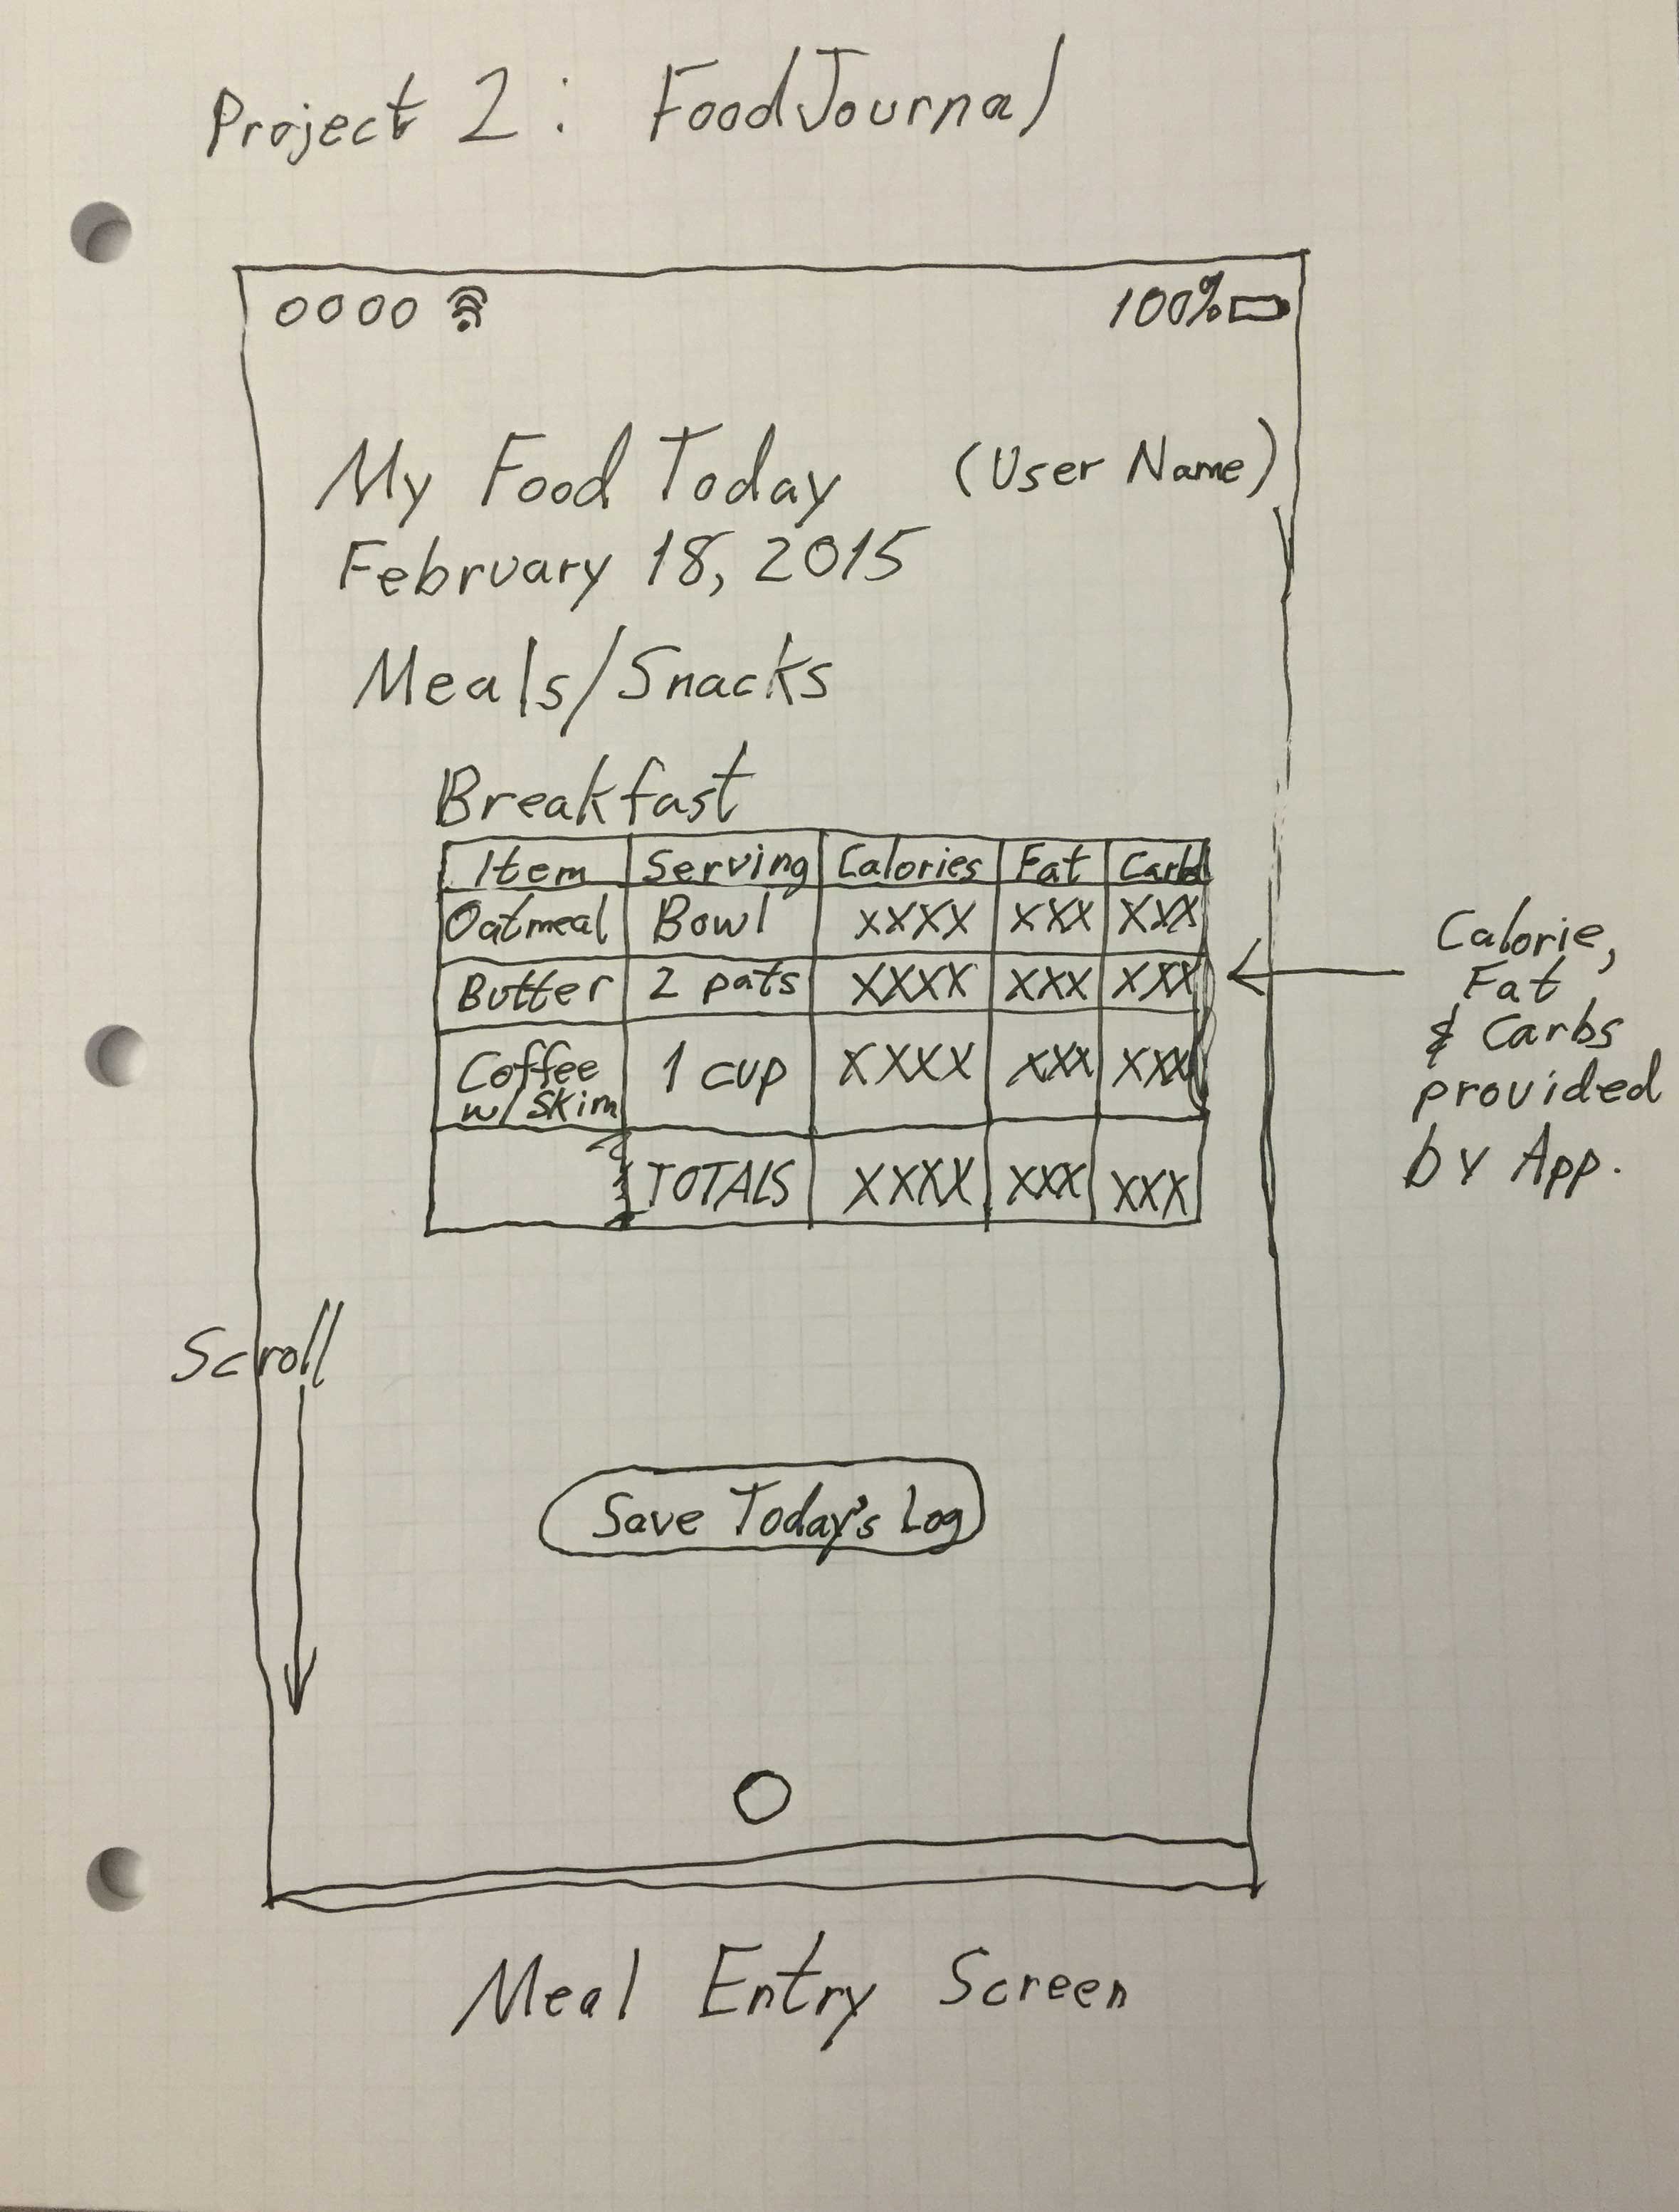 Project 2: FoodJournal
100%
My Food Today (User Name)
February 18, 2015
Meals/Snacks
Breakfast
Item Serving Calories Fat Carbs
Oatmeal Bowl XXXX XXX XXX
Butter 2 pats XXXX XXX XXX
Coffee w/ Skim 1 cup XXXX XXX XXX
TOTALS XXXX XXX XXX
Calorie,
Fat
& Carbs
provided
by App.
Scroll
Save Today's Log
Meal Entry Screen